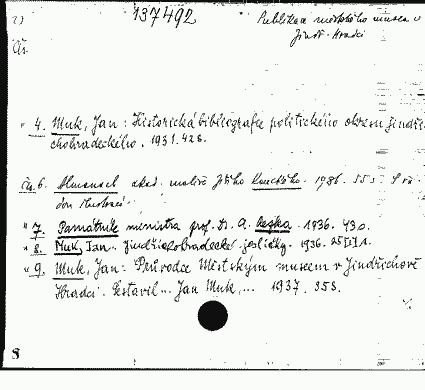 2) 137492 Publikace městského musea v
Jindř. Hradci
Čís.
" 4. Muk, Jan: Historická bibliografie politického okresu Jindři-
chohradeckého. 1931. 42 s.
Čís. 6. Almanach akad. malíře 1936. 55 s. S
" 7. Památník ministra prof. Dr. A. 1936. 43 s.
" 8. Muk, Jan. Jindřichohradecké jesličky. 1936.
" 9. Muk, Jan: Průvodce Městským museem v Jindřichově
Hradci. Sestavil .. Jan Muk, ... 1937. 35 s.
8